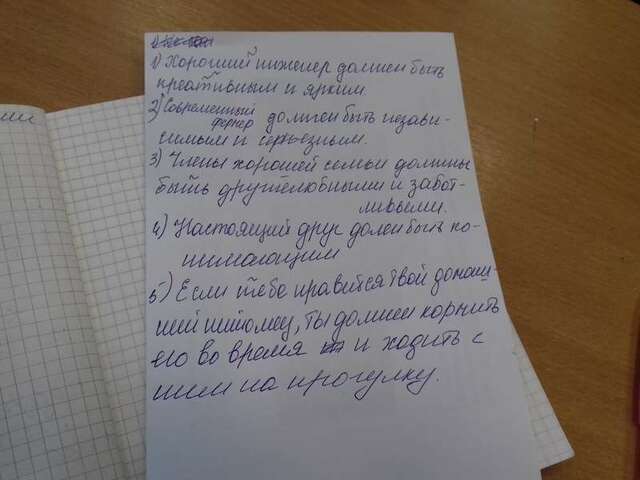 1) Хороший инженер должен быть
креативным и ярким
2) Современный
должен быть незави-
симым и серьезным.
3) Члены хорошей семьи должны
быть дружелюбными и забот-
ливыми.
4) Настоящий друг должен быть по-
5) Если тебе нравится твой домаш-
ний питомец, ты должен кормить
его во время и ходить с
ним на прогулку.